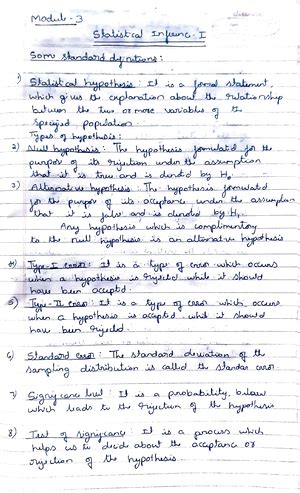 Module - 3
Statistical Inferenc - I
Some standard definitions :
1) Statistical hypothesis : It is a formal statement
which gives the explanation about the relationship
between the two or more variables of the
specified population.
Types of hypothesis :
2) Null hypothesis : The hypothesis formulated for the
purpose of its rejection under the assumption
that it is true and is denoted by H₀
3) Alternative hypothesis : The hypothesis formulated
for the purpose of its acceptance under the assumption
that it is false and is denoted by H₁.
Any hypothesis which is complimentary
to the null hypothesis is an alternative hypothesis
4) Type-I error : It is a type of error which occurs
when a hypothesis is rejected while it should
have been accepted.
5) Type-II error : It is a type of error which occurs
when a hypothesis is accepted while it should
have been rejected.
6) Standard error : The standard deviation of the
sampling distribution is called the standar error
7) Significance level : It is a probability below
which leads to the rejection of the hypothesis
8) Test of significance : It is a process which
helps us to decide about the acceptance or
rejection of the hypothesis.